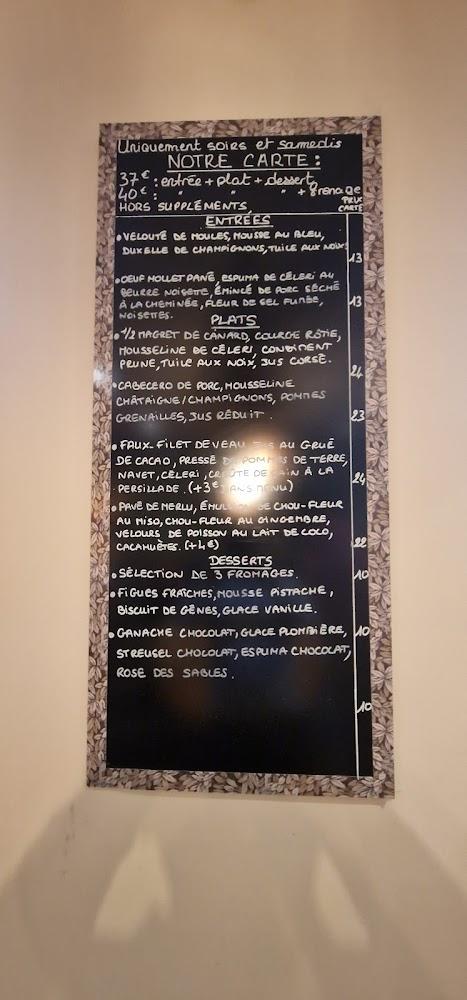 Uniquement soirs et samedis
NOTRE CARTE:
37€: entrée + plat + dessert
40€: " " " + fromage
HORS SUPPLÉMENTS,
PRIX
CARTE
ENTRÉES
• VELOUTÉ DE MOULES, MOUSSE AU BLEU,
DUXELLE DE CHAMPIGNONS, TUILE AUX NOIX
13
• OEUF MOLLET PANÉ, ESPUMA DE CÉLERI AU
BEURRE NOISETTE, ÉMINCÉ DE PORC SÉCHÉ
À LA CHEMINÉE, FLEUR DE SEL FUMÉE, 13
NOISETTES.
PLATS
• 1/2 MAGRET DE CANARD, COURGE RÔTIE,
MOUSSELINE DE CÉLERI, CONDIMENT
PRUNE, TUILE AUX NOIX, JUS CORSÉ. 24
• CABECERO DE PORC, MOUSSELINE
CHÂTAIGNE/CHAMPIGNONS, POMMES
GRENAILLES, JUS RÉDUIT. 23
• FAUX-FILET DE VEAU AU GRUÉ
DE CACAO, PRESSÉ DE POMMES DE TERRE,
NAVET, CÉLERI, DE PAIN À LA 24
PERSILLADE. (+3€ MENU)
• PAVÉ DE MERLU, DE CHOU-FLEUR
AU MISO, CHOU-FLEUR AU GINGEMBRE,
VELOURS DE POISSON AU LAIT DE COCO,
CACAHUÈTES. (+4€) 22
DESSERTS
• SÉLECTION DE 3 FROMAGES. 10
• FIGUES FRAÎCHES, MOUSSE PISTACHE,
BISCUIT DE GÊNES, GLACE VANILLE.
• GANACHE CHOCOLAT, GLACE PLOMBIÈRE, 10
STREUSEL CHOCOLAT, ESPUMA CHOCOLAT,
ROSE DES SABLES.
10